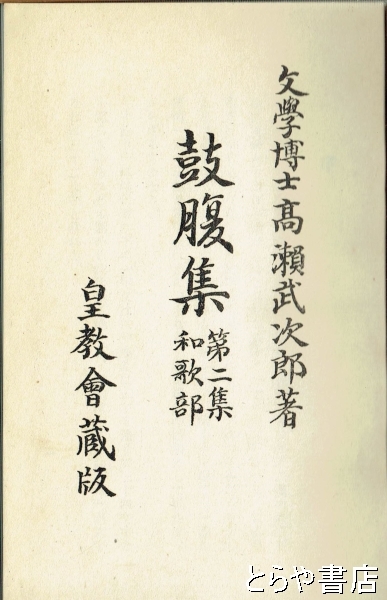 文學博士髙瀬武次郎著
鼓腹集
第二集
和歌部
皇教會蔵版
とらや書店